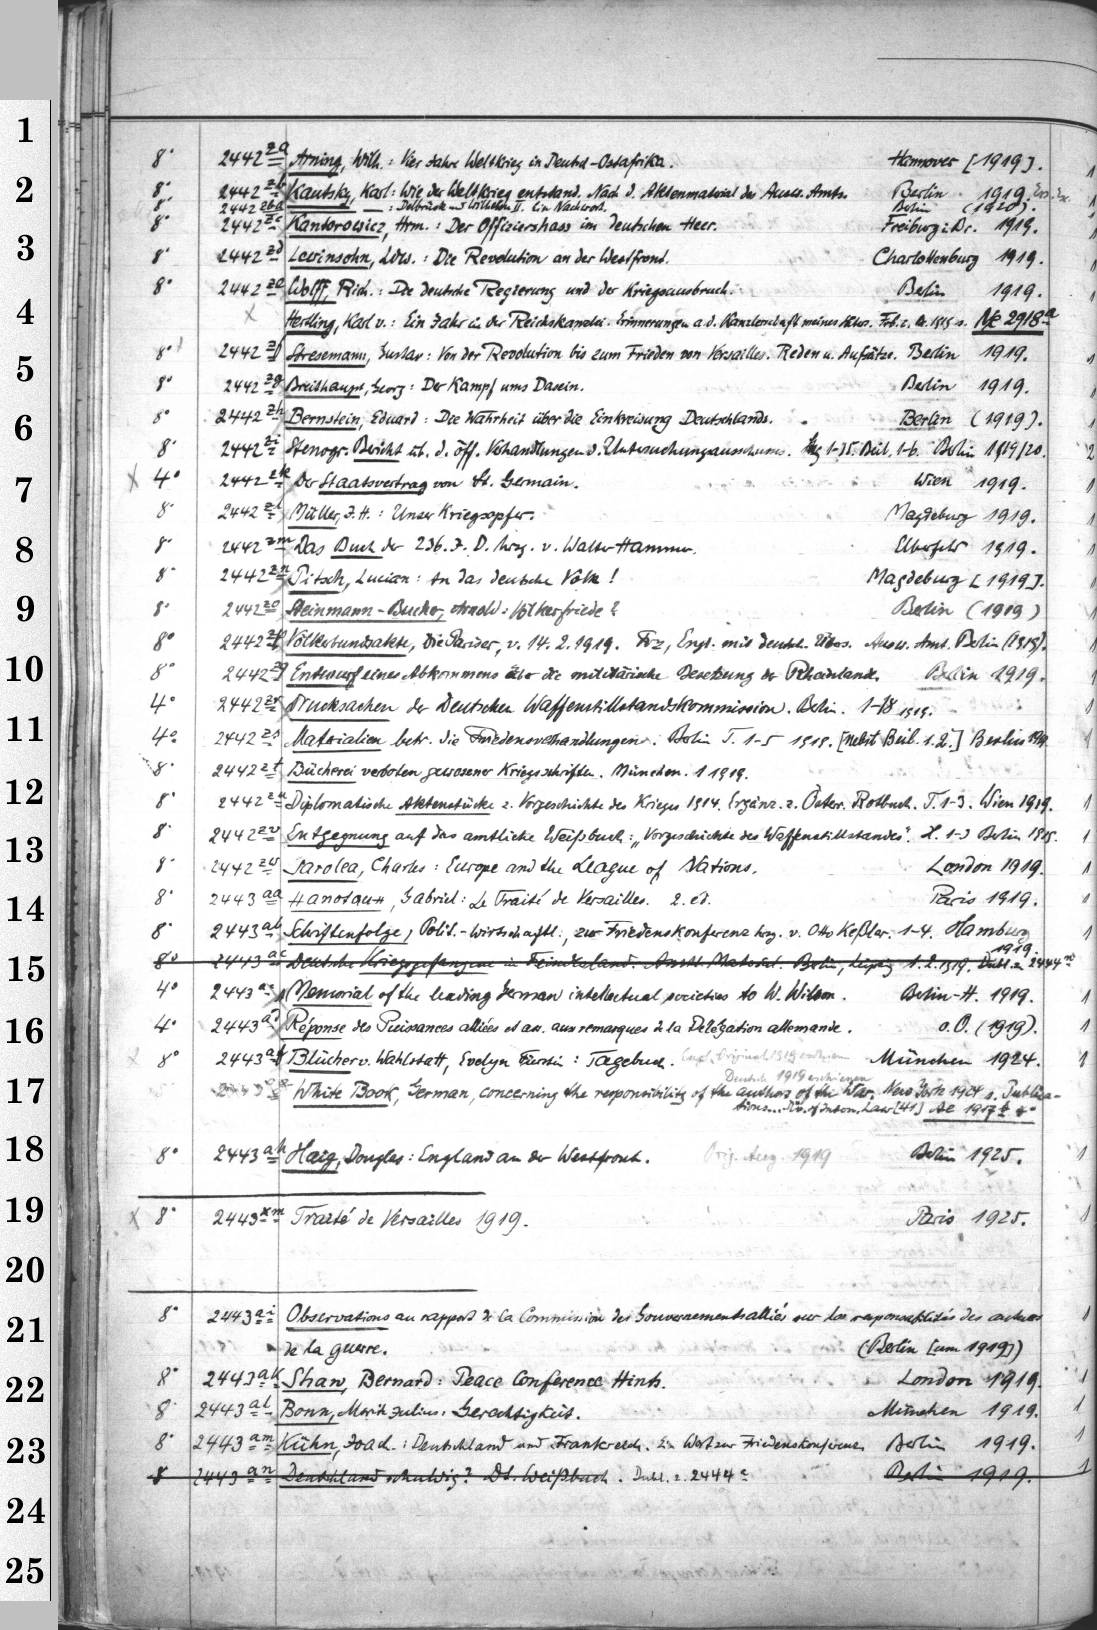 1
8° 2442 za Arning, Wilh.: Vier Jahre Weltkrieg in Deutsch-Ostafrika. Hannover [1919].
2
8° 2442 zb Kautsky, Karl: Wie der Weltkrieg entstand. Nach d. Aktenmaterial des Ausw. Amts. Berlin 1919.
8° 2442 zba — : Delbrück und Wilhelm II. Ein Nachwort. Berlin (1920).
8° 2442 zc Kantorowicz, Hrm.: Der Offiziershass im deutschen Heer. Freiburg i. Br. 1919.
3
8° 2442 zd Lewinsohn, Ldw.: Die Revolution an der Westfront. Charlottenburg 1919.
8° 2442 ze Wolff, Rich.: Die deutsche Regierung und der Kriegsausbruch. Berlin 1919.
4
Hertling, Karl v.: Ein Jahr in der Reichskanzlei. Erinnerungen a. d. Kanzlerschaft meines Vaters. Frb. i. Br. 1919 s. Ne 2918 a
8° 2442 zf Stresemann, Gustav: Von der Revolution bis zum Frieden von Versailles. Reden u. Aufsätze. Berlin 1919.
5
8° 2442 zg Breithaupt, Georg: Der Kampf ums Dasein. Berlin 1919.
6
8° 2442 zh Bernstein, Eduard: Die Wahrheit über die Einkreisung Deutschlands. Berlin (1919).
8° 2442 zi Stenogr. Bericht üb. d. öff. Verhandlungen d. Untersuchungsausschusses. 1-15. Beil. 1-6. Berlin 1919/20.
7
4° 2442 zk Der Staatsvertrag von St. Germain. Wien 1919.
8° 2442 zl Müller, J. H.: Unser Kriegsopfer. Magdeburg 1919.
8
8° 2442 zm Das Buch der 236. J. D. hrsg. v. Walter Hammer. Elberfeld 1919.
8° 2442 zn Pitsch, Lucian: An das deutsche Volk! Magdeburg [1919].
9
8° 2442 zo Steinmann-Bucher, Arnold: Völkerfriede? Berlin (1919)
8° 2442 zp Völkerbundsakte, Die Pariser, v. 14. 2. 1919. Frz., Engl. mit deutsch. Übers. Ausw. Amt. Berlin (1919).
10
8° 2442 zq Entwurf eines Abkommens über die militärische Besetzung der Rheinlande. Berlin 1919.
4° 2442 zr Drucksachen der Deutschen Waffenstillstandskommission. Berlin. 1-18 1919.
11
4° 2442 zs Materialien betr. die Friedensverhandlungen. Berlin T. 1-5 1919. [Nebst Beil. 1.2.] Berlin 1919
8° 2442 zt Bücherei verboten gewesener Kriegsschriften. München. 1 1919.
12
8° 2442 zu Diplomatische Aktenstücke z. Vorgeschichte des Krieges 1914. Ergänz. z. Österr. Rotbuch. T. 1-3. Wien 1919.
8° 2442 zv Entgegnung auf das amtliche Weißbuch: „Vorgeschichte des Waffenstillstandes". H. 1-3 Berlin 1919.
13
8° 2442 zw Sarolea, Charles: Europe and the League of Nations. London 1919.
8° 2443 aa Hanotaux, Gabriel: Le Traité de Versailles. 2. ed. Paris 1919.
14
8° 2443 ab Schriftenfolge, Polit.-wirtschaftl., zur Friedenskonferenz hrsg. v. Otto Keßler. 1-4. Hamburg 1919.
15
8° 2443 ac Deutsche Kriegsgefangene in Feindesland. Amtl. Material. Berlin, Leipzig 1.2. 1919. Dubl. z. 2444 m
4° 2443 ac Memorial of the leading German intellectual societies to W. Wilson. Berlin-H. 1919.
16
4° 2443 ad Réponse des Puissances alliées et ass. aux remarques de la Délégation allemande. o. O. (1919).
8° 2443 af Blücher v. Wahlstatt, Evelyn Fürstin: Tagebuch. Engl. Original 1919 erschien München 1924.
Deutsch 1919 erschienen
17
2443 White Book, German, concerning the responsibility of the authors of the War. New York 1924 s. Publica-
tions... Div. of Intern. Law [41] Ae 1917
18
8° 2443 ah Haig, Douglas: England an der Westfront. Orig. Ausg. 1919 Berlin 1925.
19
8° 2443 xm Traité de Versailles 1919. Paris 1925.
20
21
8° 2443 ai Observations au rapport de la Commission des Gouvernements alliés sur les responsabilités des auteurs
de la guerre. (Berlin [um 1919])
22
8° 2443 ak Shaw, Bernard: Peace Conference Hints. London 1919.
8° 2443 al Bonn, Moritz Julius: Gerechtigkeit. München 1919.
23
8° 2443 am Kühn, Joach.: Deutschland und Frankreich. Ein Wort zur Friedenskonferenz. Berlin 1919.
8° 2443 an Deutschland schuldig? Dt. Weißbuch. Dubl. z. 2444 c Berlin 1919.
24
25